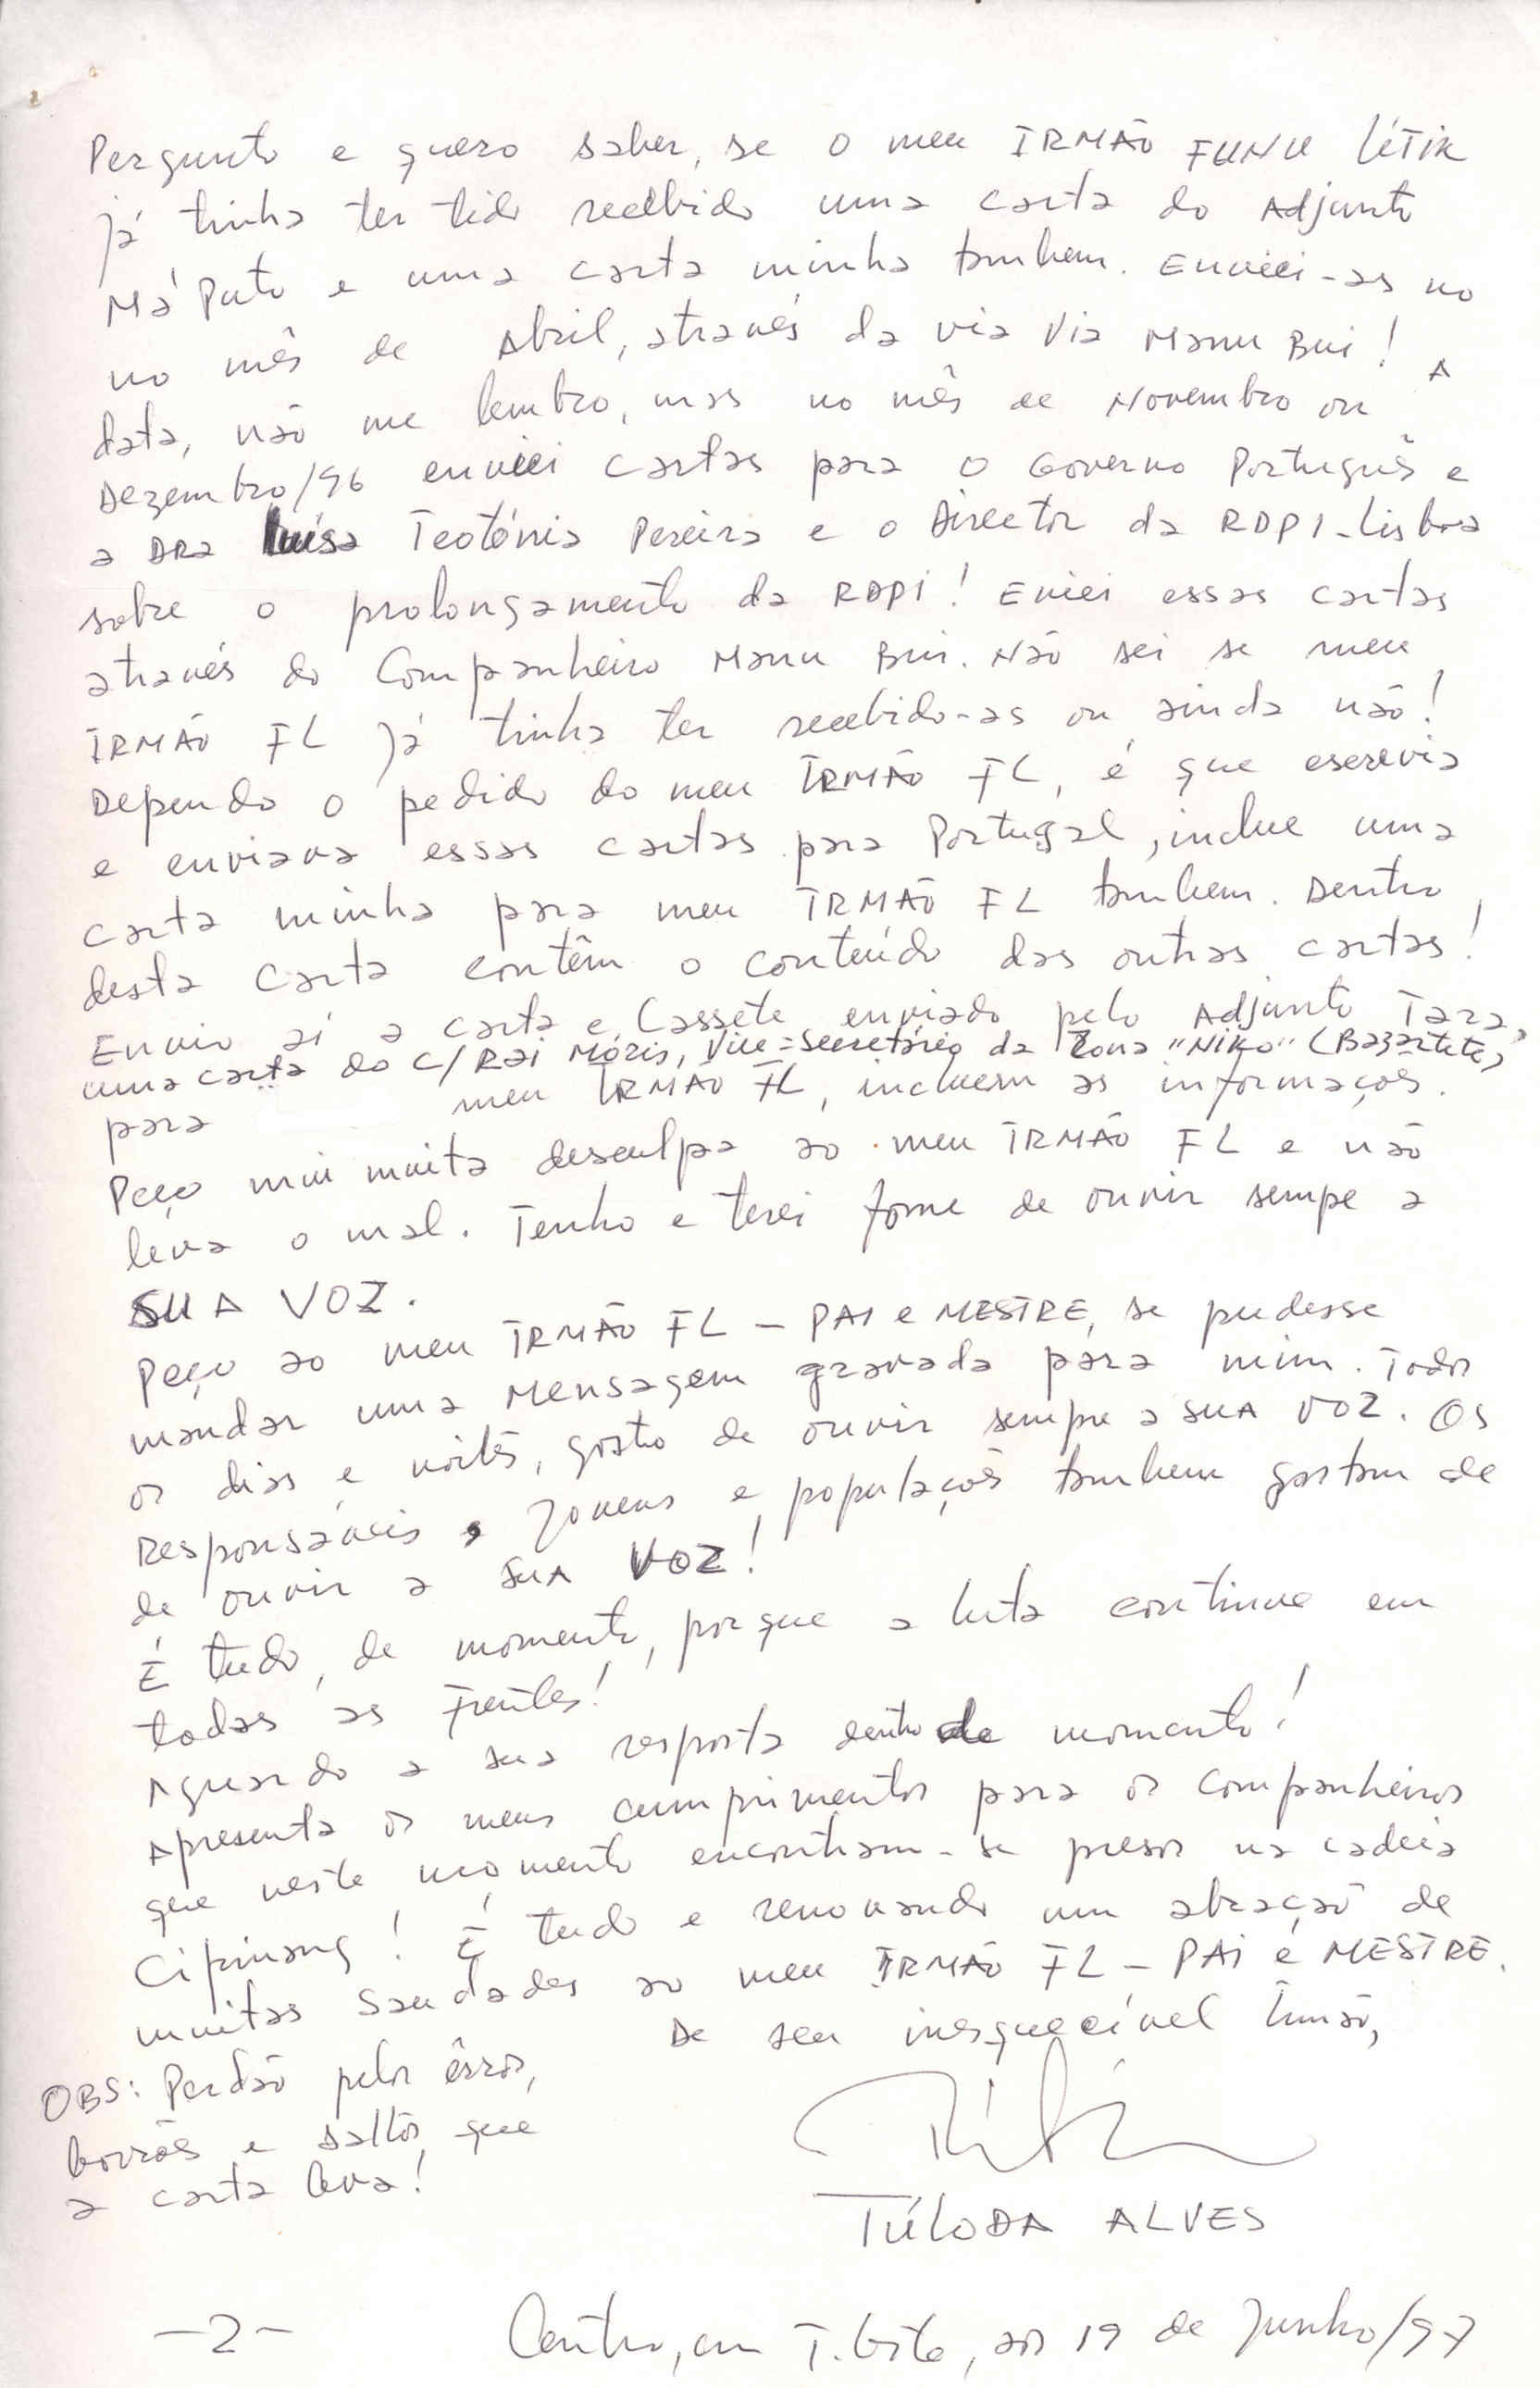 Pergunto e quero saber, se o meu IRMÃO FUNU LÉTIK
já tinha ter tido recebido uma carta do Adjunto
Má Puto e uma carta minha tambem. Enviei-as no
no mês de Abril, através da via Via Manu Bui! A
data, não me lembro, mas no mês de Novembro ou
Dezembro/96 enviei cartas para o Governo Português e
a DRa Luísa Teotónia Pereira e o Director da RDPI-Lisboa
sobre o prolongamento da RDPI! Eviei essas cartas
através do Companheiro Manu Bui. Não sei se meu
IRMÃO FL já tinha ter recebido-as ou ainda não!
Dependo o pedido do meu IRMÃO FL, é que escrevia
e enviava essas cartas para Portugal, inclue uma
carta minha para meu IRMÃO FL tambem. Dentro
desta carta contêm o conteúdo das outras cartas!
Envio aí a carta e Cassete enviado pelo Adjunto Tara,
uma carta do C/Rai Móris, Vice-Secretário da Zona "NIKO" (Bazartete)
para meu IRMÃO FL, incluem as informações.
Peço mui muita desculpa ao meu IRMÃO FL e não
leva o mal. Tenho e terei fome de ouvir sempe a
SUA VOZ.
Peço ao meu IRMÃO FL - PAI e MESTRE, se pudesse
mandar uma Mensagem gravada para mim. Todos
os dias e noites, gosto de ouvir sempre a SUA VOZ. Os
Responsáveis, Jovens e populações tambem gostam de
de ouvir a SUA VOZ!
É tudo, de momento, porque a luta continue em
todas as Frentes!
Aguardo a sua resposta dentro de momento!
Apresenta os meus cumprimentos para os companheiros
que neste momento encontram-se presos na cadeia
Cipinang! É tudo e renovando um abração de
muitas saudades ao meu IRMÃO FL - PAI e MESTRE.
De seu inesquecível Irmão,
OBS: Perdão pelos êrros,
borrões e saltos que
a carta leva!
TÚLODA ALVES
-2-
Centro, em T. Leste, aos 19 de Junho/97